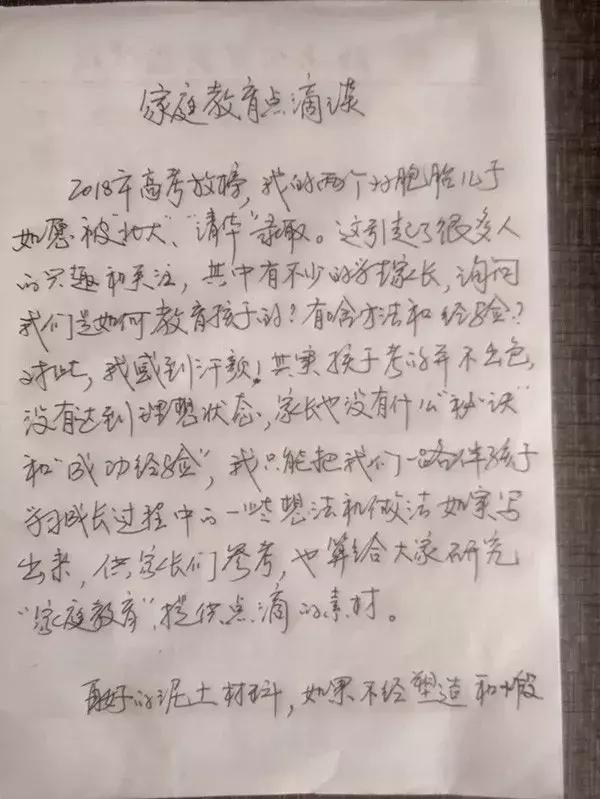 家庭教育点滴谈
2018年高考放榜，我的两个双胞胎儿子
如愿被"北大"、"清华"录取。这引起了很多人
的兴趣和关注，其中有不少的学生家长，询问
我们是如何教育孩子的？有啥方法和经验？
对此，我感到汗颜！其实孩子考的并不出色，
没有达到理想状态，家长也没有什么"秘诀"
和"成功经验"，我只能把我们一路伴孩子
学习成长过程中的一些想法和做法如实写
出来，供家长们参考，也算给大家研究
"家庭教育"，提供点滴的素材。
再好的泥土材料，如果不经塑造和煅